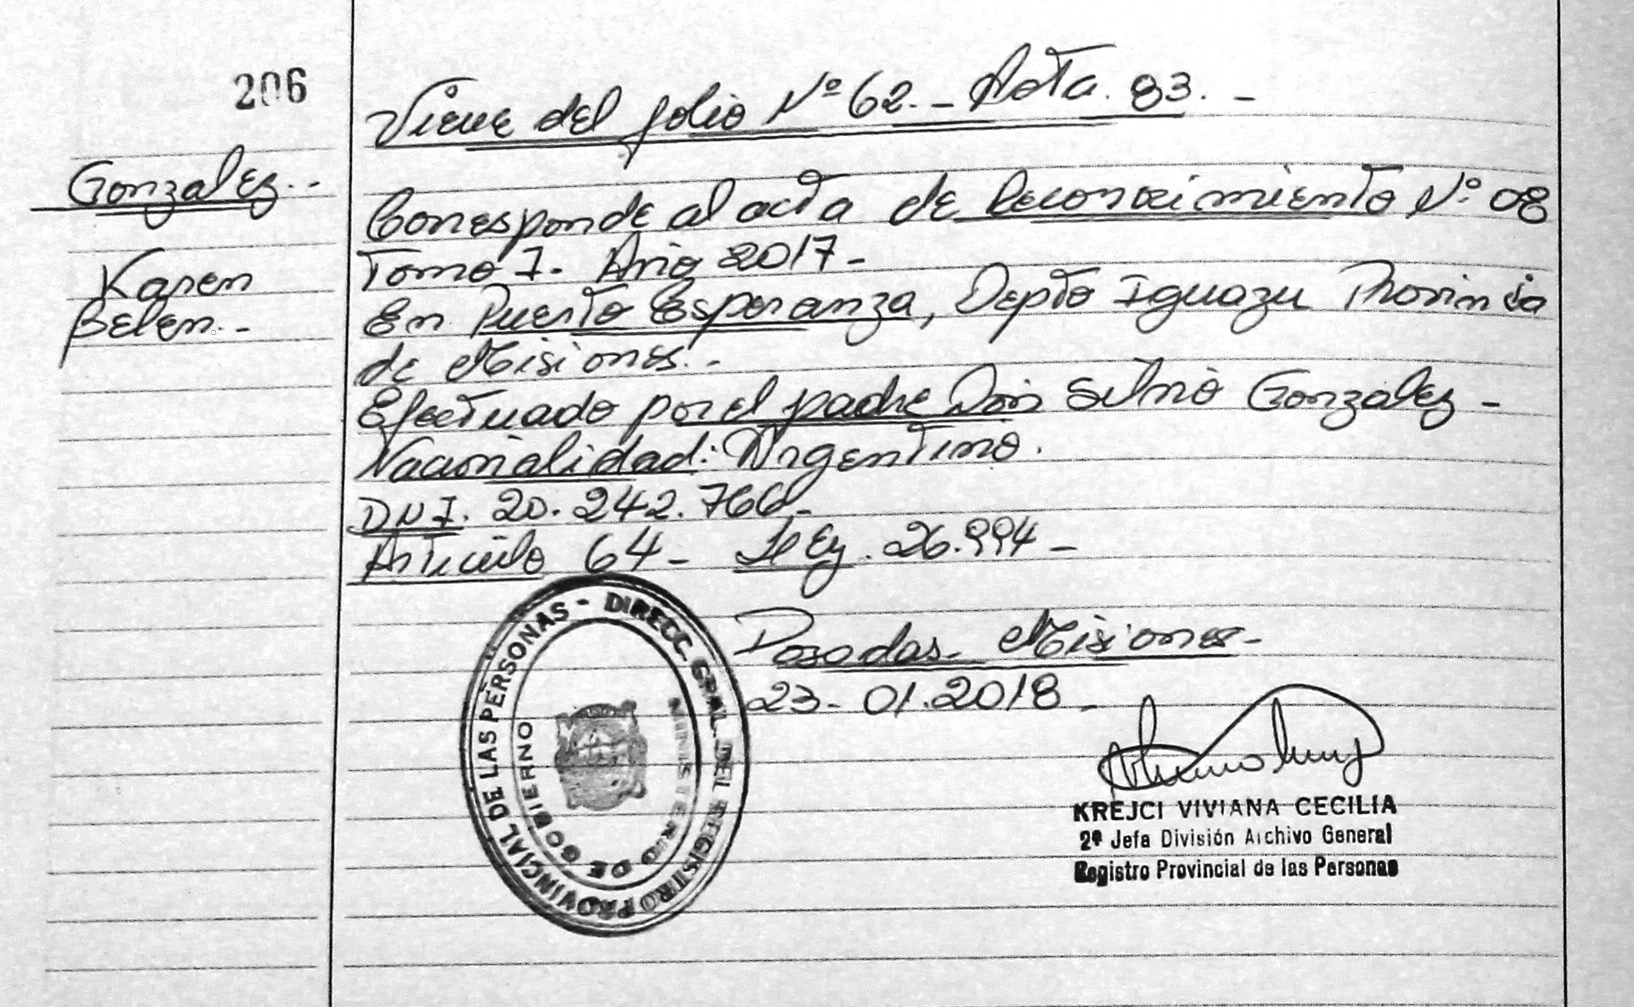 206
Viene del folio Nº 62. - Acta. 83. -
Gonzalez. -
Karen
Belen. -
Corresponde al acta de Reconocimiento Nº 08
Tomo I - Año 2017 -
En Puerto Esperanza, Depto Iguazu Provincia
de Misiones. -
Efectuado por el padre Don Silvio Gonzalez -
Nacionalidad: Argentino.
DNI. 20.242.766 -
Articulo 64 - Ley. 26.994 -
Posadas - Misiones -
23 - 01.2018 -
DIRECC. GRAL. DEL REGISTRO PROVINCIAL DE LAS PERSONAS -
MINISTERIO DE GOBIERNO
KREJCI VIVIANA CECILIA
2ª Jefa División Archivo General
Registro Provincial de las Personas